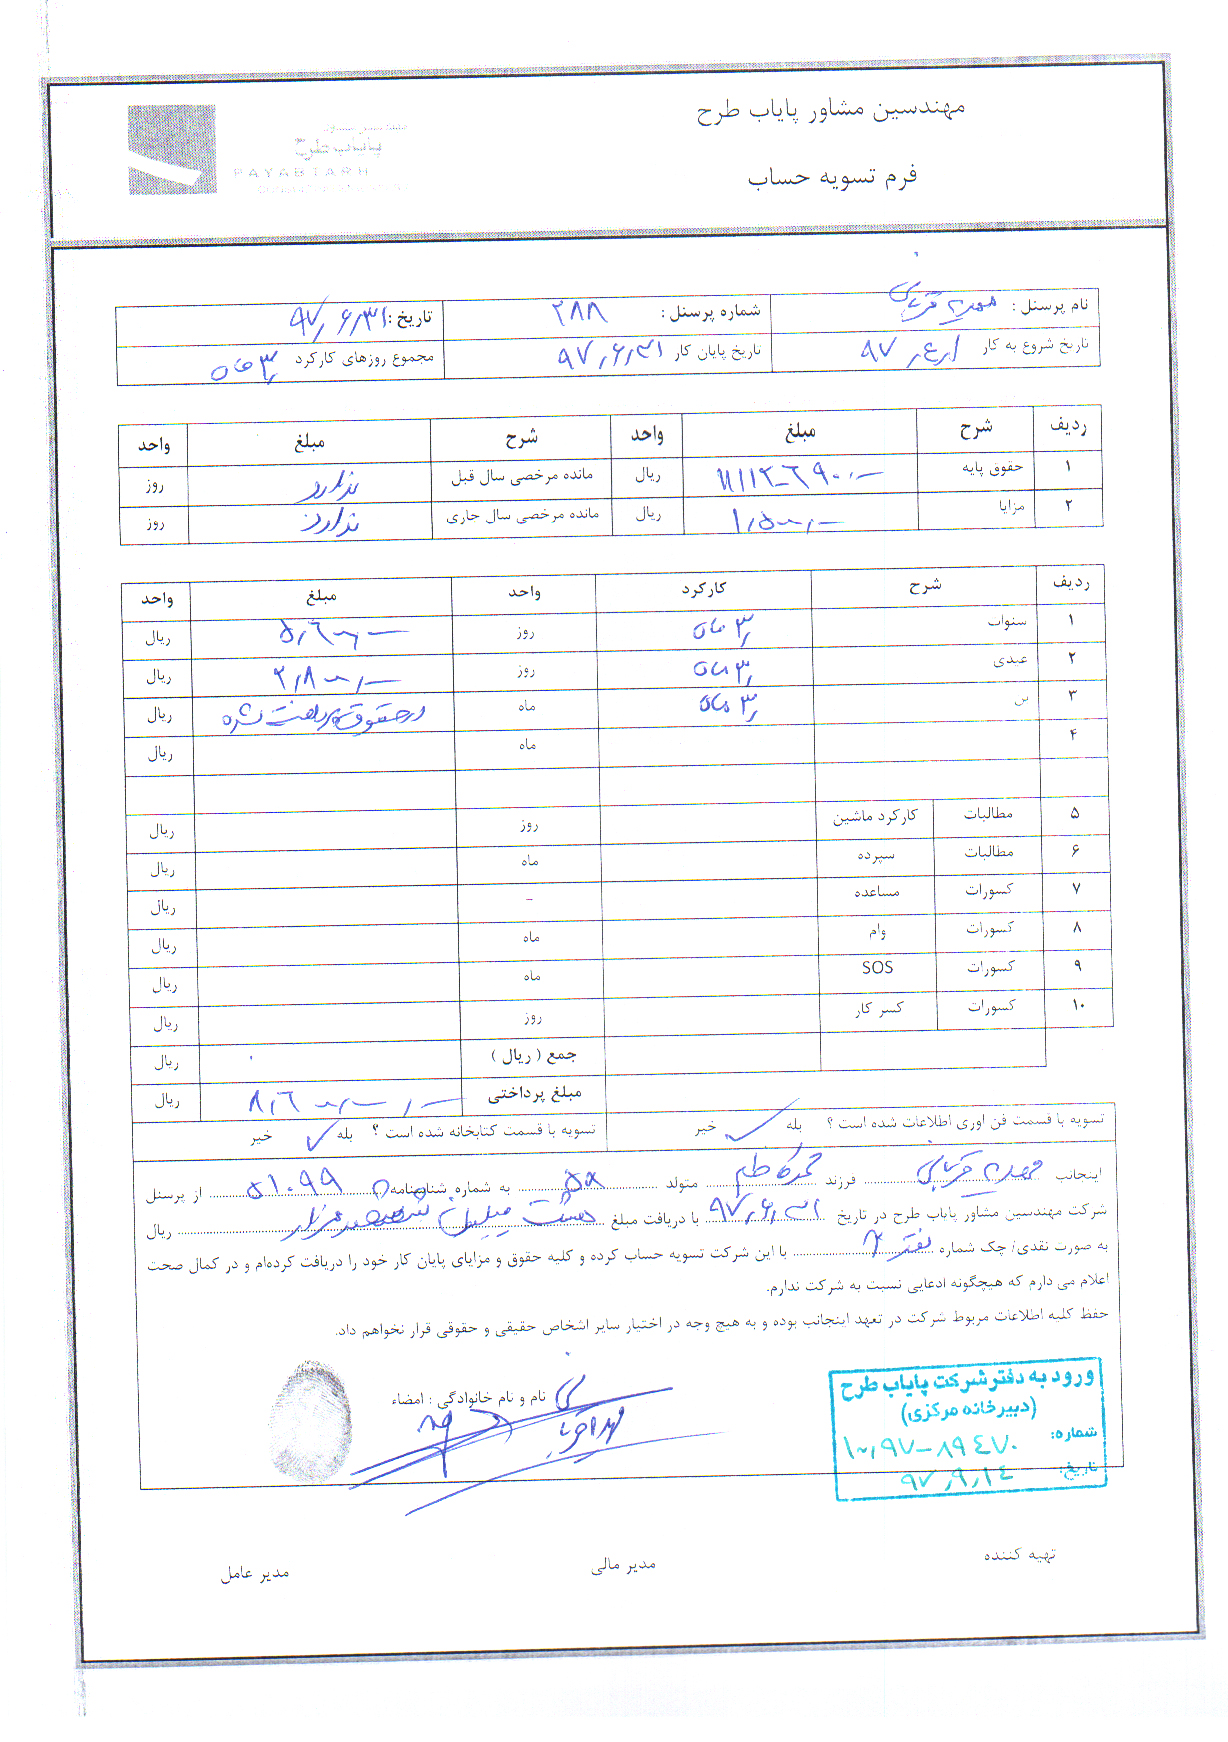 مهندسین مشاور پایاب طرح
پایاب طرح
PAYAB TARH
فرم تسویه حساب
نام پرسنل : مهدی قربانی شماره پرسنل : ۲۸۸ تاریخ : ۹۷٫۶٫۳۱
تاریخ شروع به کار ۹۷٫۴٫۱ تاریخ پایان کار ۹۷٫۶٫۳۱ مجموع روزهای کارکرد ۳ ماه
ردیف شرح مبلغ واحد شرح مبلغ واحد
۱ حقوق پایه ریال مانده مرخصی سال قبل ندارد روز
۲ مزایا ریال مانده مرخصی سال جاری ندارد روز
ردیف شرح کارکرد واحد مبلغ واحد
۱ سنوات ۳ ماه روز ۵٫۶۰۰٫۰۰۰ ریال
۲ عیدی ۳ ماه روز ۲٫۸۰۰٫۰۰۰ ریال
۳ بن ۳ ماه ماه در حقوق پرداخت شده ریال
۴ ماه ریال
۵ مطالبات کارکرد ماشین روز ریال
۶ مطالبات سپرده ماه ریال
۷ کسورات مساعده - ریال
۸ کسورات وام ماه ریال
۹ کسورات SOS ماه ریال
۱۰ کسورات کسر کار روز ریال
جمع ( ریال ) ریال
مبلغ پرداختی ۸٫۶۰۰٫۰۰۰ ریال
تسویه با قسمت فن اوری اطلاعات شده است ؟ بله ✓ خیر تسویه با قسمت کتابخانه شده است ؟ بله ✓ خیر
اینجانب مهدی قربانی فرزند محمدکاظم متولد ۵۸ به شماره شناسنامه ۵۱۰۹۹ از پرسنل
شرکت مهندسین مشاور پایاب طرح در تاریخ ۹۷٫۶٫۳۱ با دریافت مبلغ هشت میلیون ششصد هزار ریال
به صورت نقدی/ چک شماره با این شرکت تسویه حساب کرده و کلیه حقوق و مزایای پایان کار خود را دریافت کرده‌ام و در کمال صحت
اعلام می دارم که هیچگونه ادعایی نسبت به شرکت ندارم.
حفظ کلیه اطلاعات مربوط شرکت در تعهد اینجانب بوده و به هیچ وجه در اختیار سایر اشخاص حقیقی و حقوقی قرار نخواهم داد.
نام و نام خانوادگی : امضاء
مهدی قربانی
ورود به دفتر شرکت پایاب طرح
(دبیرخانه مرکزی)
شماره: ۱۰۰٫۹۷-۸۹۴۷۰
تاریخ: ۹۷٫۹٫۱۴
تهیه کننده مدیر مالی مدیر عامل